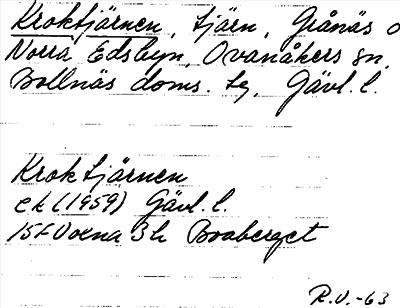 Kroktjärnen, tjärn, Grånäs o
Norra Edsbyn, Ovanåkers sn,
Bollnäs doms. tg, Gävl. l.
Kroktjärnen
ek (1959) Gävl. l.
15F Voxna 3h Boaberget
R.V.-63